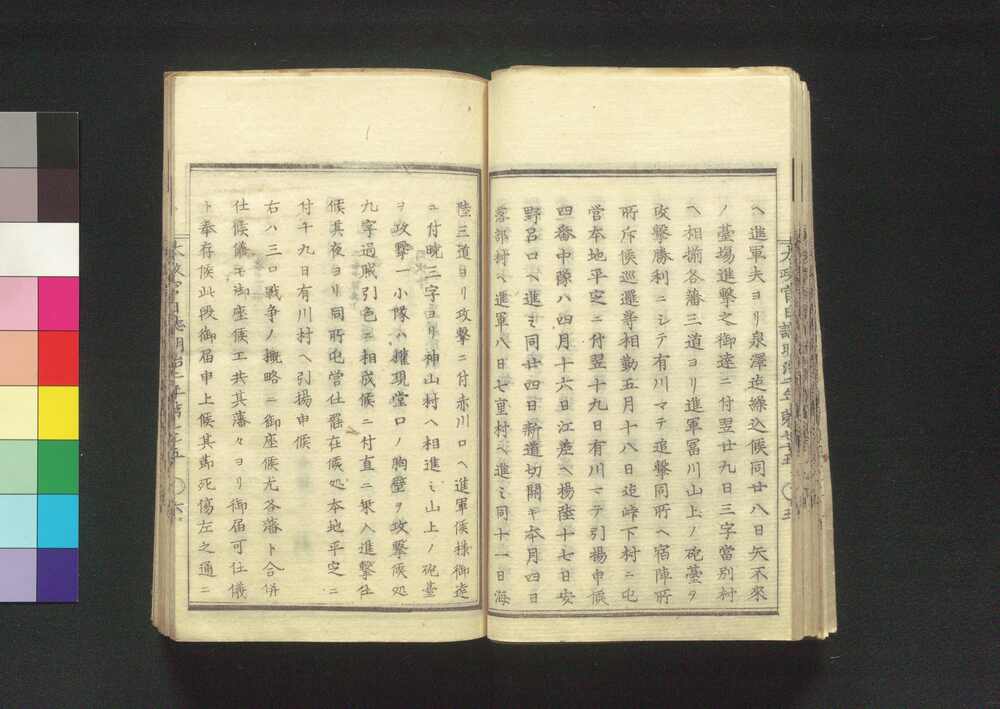 ヘ進軍夫ヨリ泉澤迠繰込候同廿八日矢不來
ノ臺場進撃之御達ニ付翌廿九日三字當別村
ヘ相揃各藩三道ヨリ進軍冨川山上ノ砲臺ヲ
攻撃勝利ニシテ有川マテ追撃同所ヘ宿陣所
所斥候巡邏等相勤五月十八日迠峠下村ニ屯
營本地平定ニ付翌十九日有川マテ引揚申候
四番中隊ハ四月十六日江差ヘ揚陸十七日安
野呂口ヘ進ミ同廿四日新道切開キ本月四日
落部村ヘ進軍八日七重村ヘ進ミ同十一日海
太政官日誌明治二年第七十五 〇五
陸三道ヨリ攻撃ニ付赤川口ヘ進軍候様御達
ニ付暁三字ヨリ神山村ヘ相進ミ山上ノ砲臺
ヲ攻撃一小隊ハ權現堂口ノ胸壁ヲ攻撃候処
九字過賊引色ニ相成候ニ付直ニ乗入進撃仕
候其夜ヨリ同所屯営仕罷在候処本地平定ニ
付千九日有川村ヘ引揚申候
右ハ三口戦争ノ概略ニ御座候尤各藩ト合併
仕候儀モ御座候エ共其藩々ヨリ御届可仕儀
ト奉存候此段御届申上候其節死傷左之通ニ
太政官日誌明治二年第七十五 〇六